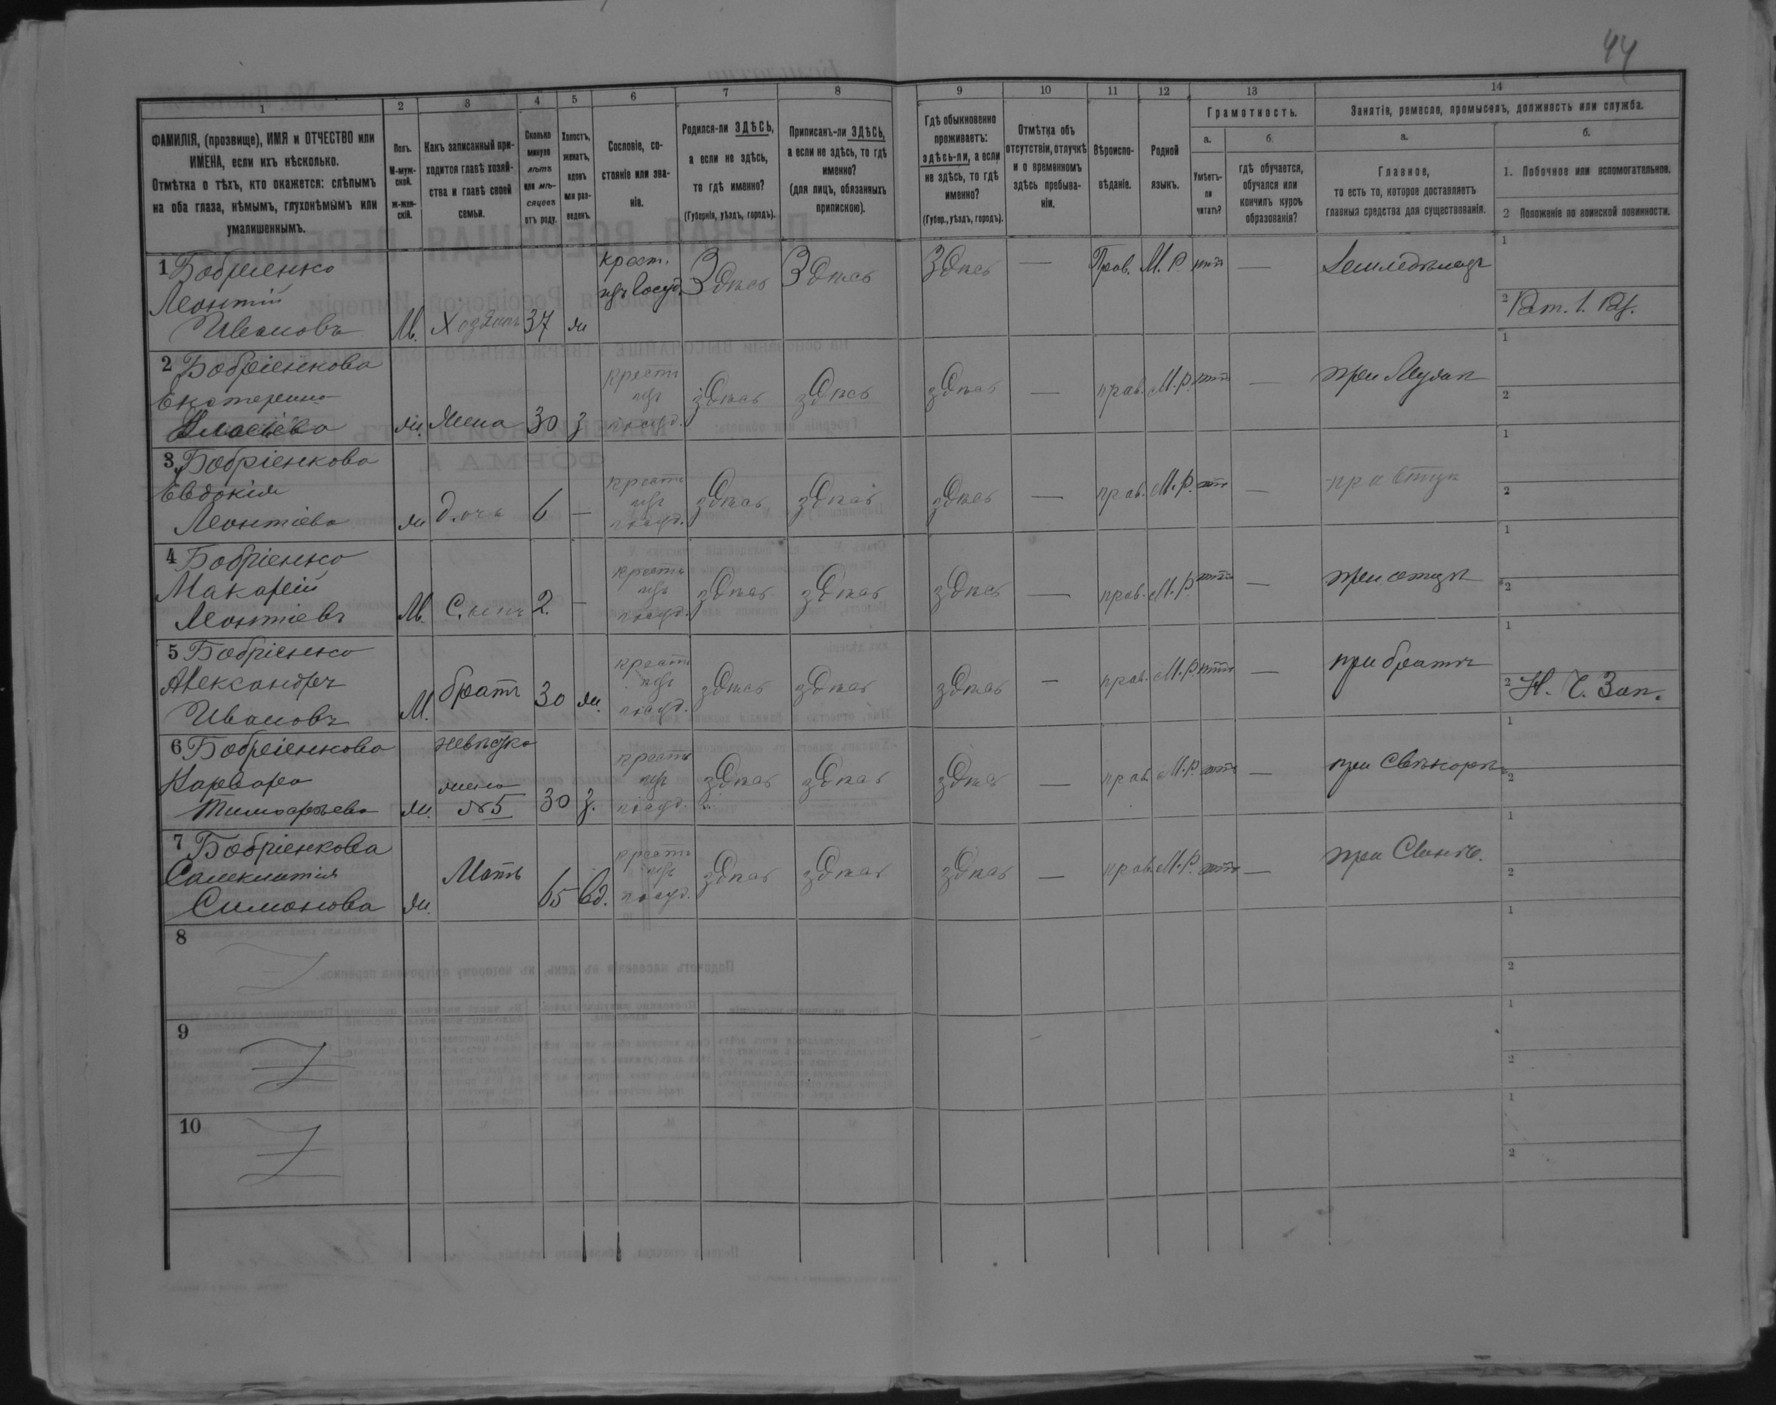 44
1 2 3 4 5 6 7 8 9 10 11 12 13 14
ФАМИЛІЯ, (прозвище), ИМЯ и ОТЧЕСТВО или
ИМЕНА, если ихъ нѣсколько.
Отмѣтка о тѣхъ, кто окажется: слѣпымъ
на оба глаза, нѣмымъ, глухонѣмымъ или
умалишеннымъ.
Полъ.
М-муж-
ской.
ж-жен-
скій.
Какъ записанный при-
ходится главѣ хозяй-
ства и главѣ своей
семьи.
Сколько
минуло
лѣтъ
или мѣ-
сяцевъ
отъ роду.
Холостъ,
женатъ,
вдовъ
или раз-
веденъ.
Сословіе, со-
стояніе или зва-
ніе.
Родился-ли ЗДѢСЬ,
а если не здѣсь,
то гдѣ именно?
(Губернія, уѣздъ, городъ).
Приписанъ-ли ЗДѢСЬ,
а если не здѣсь, то гдѣ
именно?
(для лицъ, обязанныхъ
припискою).
Гдѣ обыкновенно
проживаетъ:
здѣсь-ли, а если
не здѣсь, то гдѣ
именно?
(Губер., уѣздъ, городъ).
Отмѣтка объ
отсутствіи, отлучкѣ
и о временномъ
здѣсь пребыва-
ніи.
Вѣроиспо-
вѣданіе.
Родной
языкъ.
Грамотность.
а.
Умѣетъ-
ли
читать?
б.
гдѣ обучается,
обучался или
кончилъ курсъ
образованія?
Занятія, ремесло, промыселъ, должность или служба.
а.
Главное,
то есть то, которое доставляетъ
главныя средства для существованія.
б.
1. Побочное или вспомогательное.
2 Положеніе по воинской повинности.
1 Бобріенко
Леонтій
Ивановъ
М. Хозяинъ 37 ж
крест.
изъ Госуд.
Здѣсь Здѣсь Здѣсь — Прав. М.Р. нѣтъ — Земледѣлецъ
1
2 Рат. 1. Рз.
2 Бобріенкова
Екатерина
Власіева
ж. Жена 30 з
крестн
изъ
госуд.
здѣсь здѣсь здѣсь — прав. М.Р. нѣтъ — при Мужѣ
1
2
3 Бобріенкова
Евдокія
Леонтіева
ж дочь 6 —
крестн
изъ
госуд.
здѣсь здѣсь здѣсь — прав. М.Р. нѣтъ — при отцѣ
1
2
4 Бобріенко
Макарій
Леонтіевъ
М. Сынъ 2 —
крестн
изъ
госуд.
здѣсь здѣсь здѣсь — прав. М.Р нѣтъ — при отцѣ
1
2
5 Бобріенко
Александръ
Ивановъ
М. братъ 30 ж.
крестн
изъ
госуд.
здѣсь здѣсь здѣсь — прав. М.Р нѣтъ — при братѣ
1
2 Н. Ч. Зап.
6 Бобріенкова
Варвара
Тимофѣева
ж.
невѣстка
жена
№5
30 з.
крестн
изъ
госуд.
здѣсь здѣсь здѣсь — прав. М.Р. нѣтъ — при Свѣкорѣ
1
2
7 Бобріенкова
Симонова
ж. Мать 65 вд.
крестн
изъ
госуд.
здѣсь здѣсь здѣсь — прав. М.Р. нѣтъ — при Сынѣ.
1
2
8
1
2
9
1
2
10
1
2